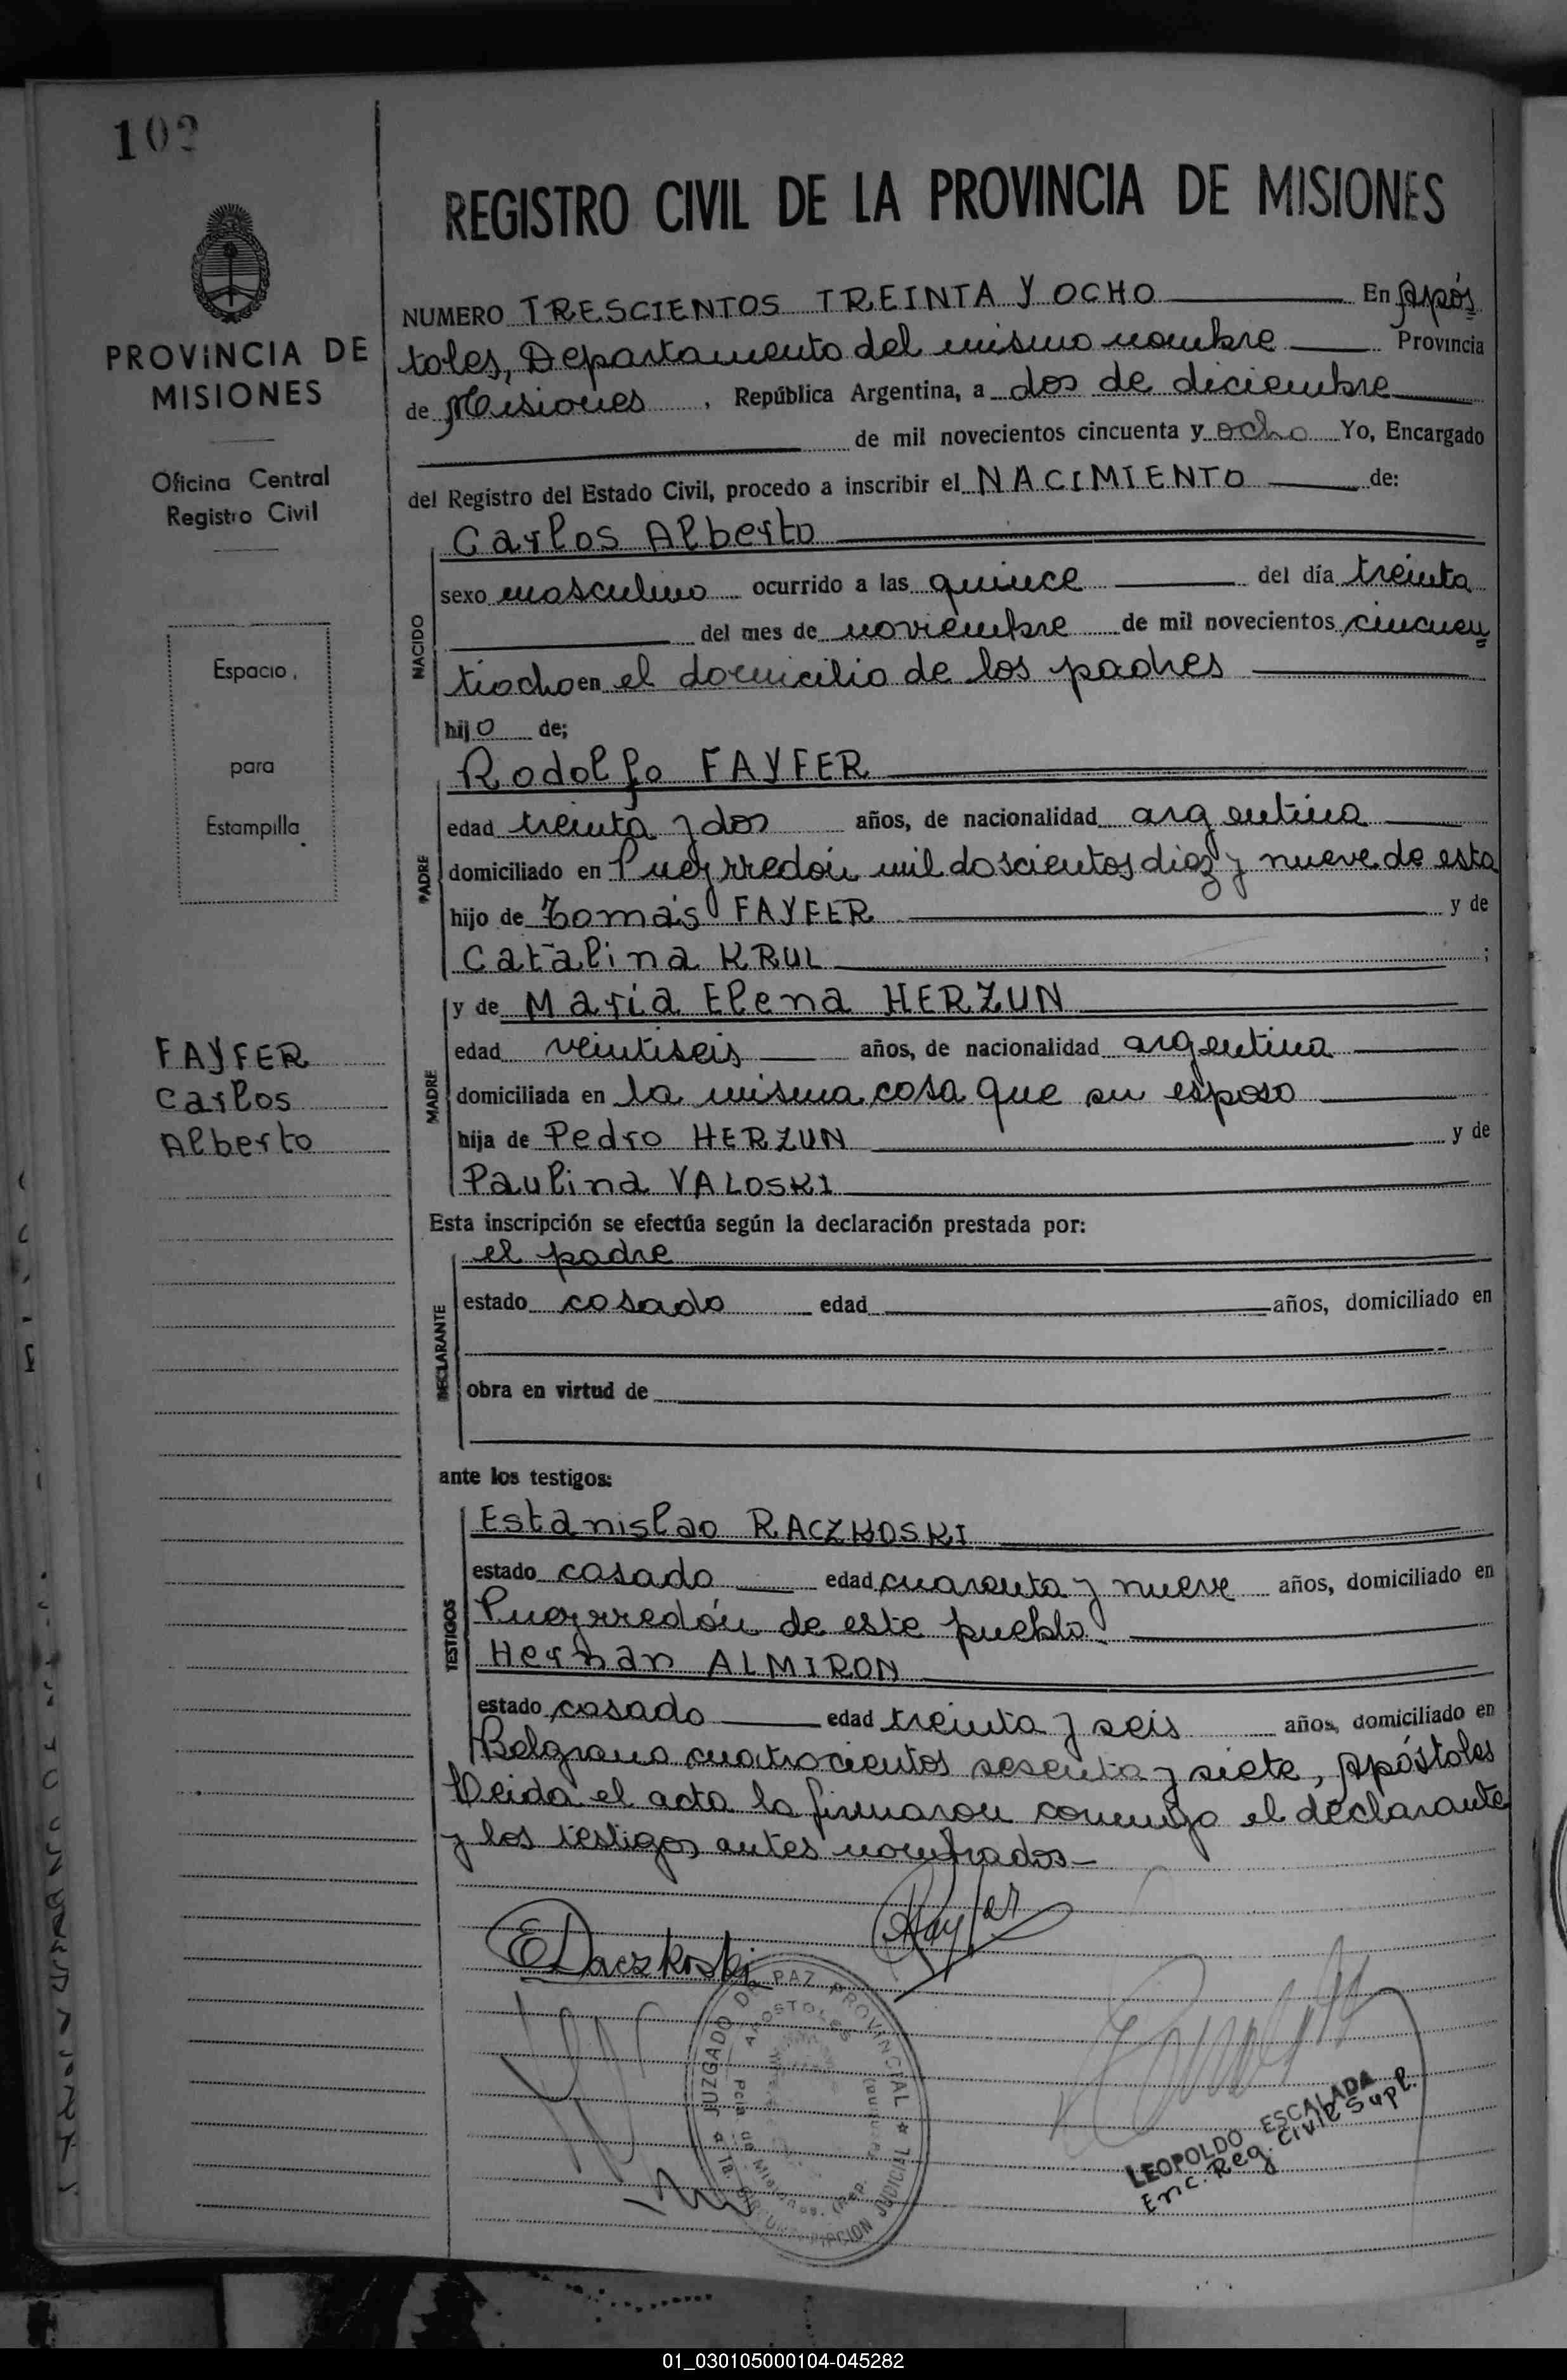 102
PROVINCIA DE
MISIONES
Oficina Central
Registro Civil
Espacio
para
Estampilla
FAYFER
Carlos
Alberto
REGISTRO CIVIL DE LA PROVINCIA DE MISIONES
NUMERO TRESCIENTOS TREINTA Y OCHO En Após
toles, Departamento del mismo nombre Provincia
de Misiones, República Argentina, a dos de diciembre
de mil novecientos cincuenta y ocho Yo, Encargado
del Registro del Estado Civil, procedo a inscribir el NACIMIENTO de:
Carlos Alberto
NACIDO
sexo masculino ocurrido a las quince del día treinta
del mes de noviembre de mil novecientos cincuen
tiocho en el domicilio de los padres
hijo de;
PADRE
Rodolfo FAYFER
edad treinta y dos años, de nacionalidad argentina
domiciliado en Pueyrredón mil doscientos diez y nueve de esta
hijo de Tomás FAYFER y de
Catalina KRUL ;
MADRE
y de María Elena HERZUN
edad veintiseis años, de nacionalidad argentina
domiciliada en la misma casa que su esposo
hija de Pedro HERZUN y de
Paulina VALOSKI
Esta inscripción se efectúa según la declaración prestada por:
DECLARANTE
el padre
estado casado edad años, domiciliado en
obra en virtud de
ante los testigos:
TESTIGOS
Estanislao RACZKOSKI
estado casado edad cuarenta y nueve años, domiciliado en
Pueyrredón de este pueblo.
Hernan ALMIRON
estado casado edad treinta y seis años, domiciliado en
Belgrano cuatrocientos sesenta y siete, Apóstoles
Leida el acta la firmaron conmigo el declarante
y los testigos antes nombrados—
RFayfer
ERaczkoski
JUZGADO DE PAZ PROVINCIAL
APOSTOLES
Pcia. de Misiones. (Rep.
1a. CIRCUNSCRIPCION JUDICIAL
LEOPOLDO ESCALADA
Enc. Reg. Civil Supl.
01_030105000104-045282